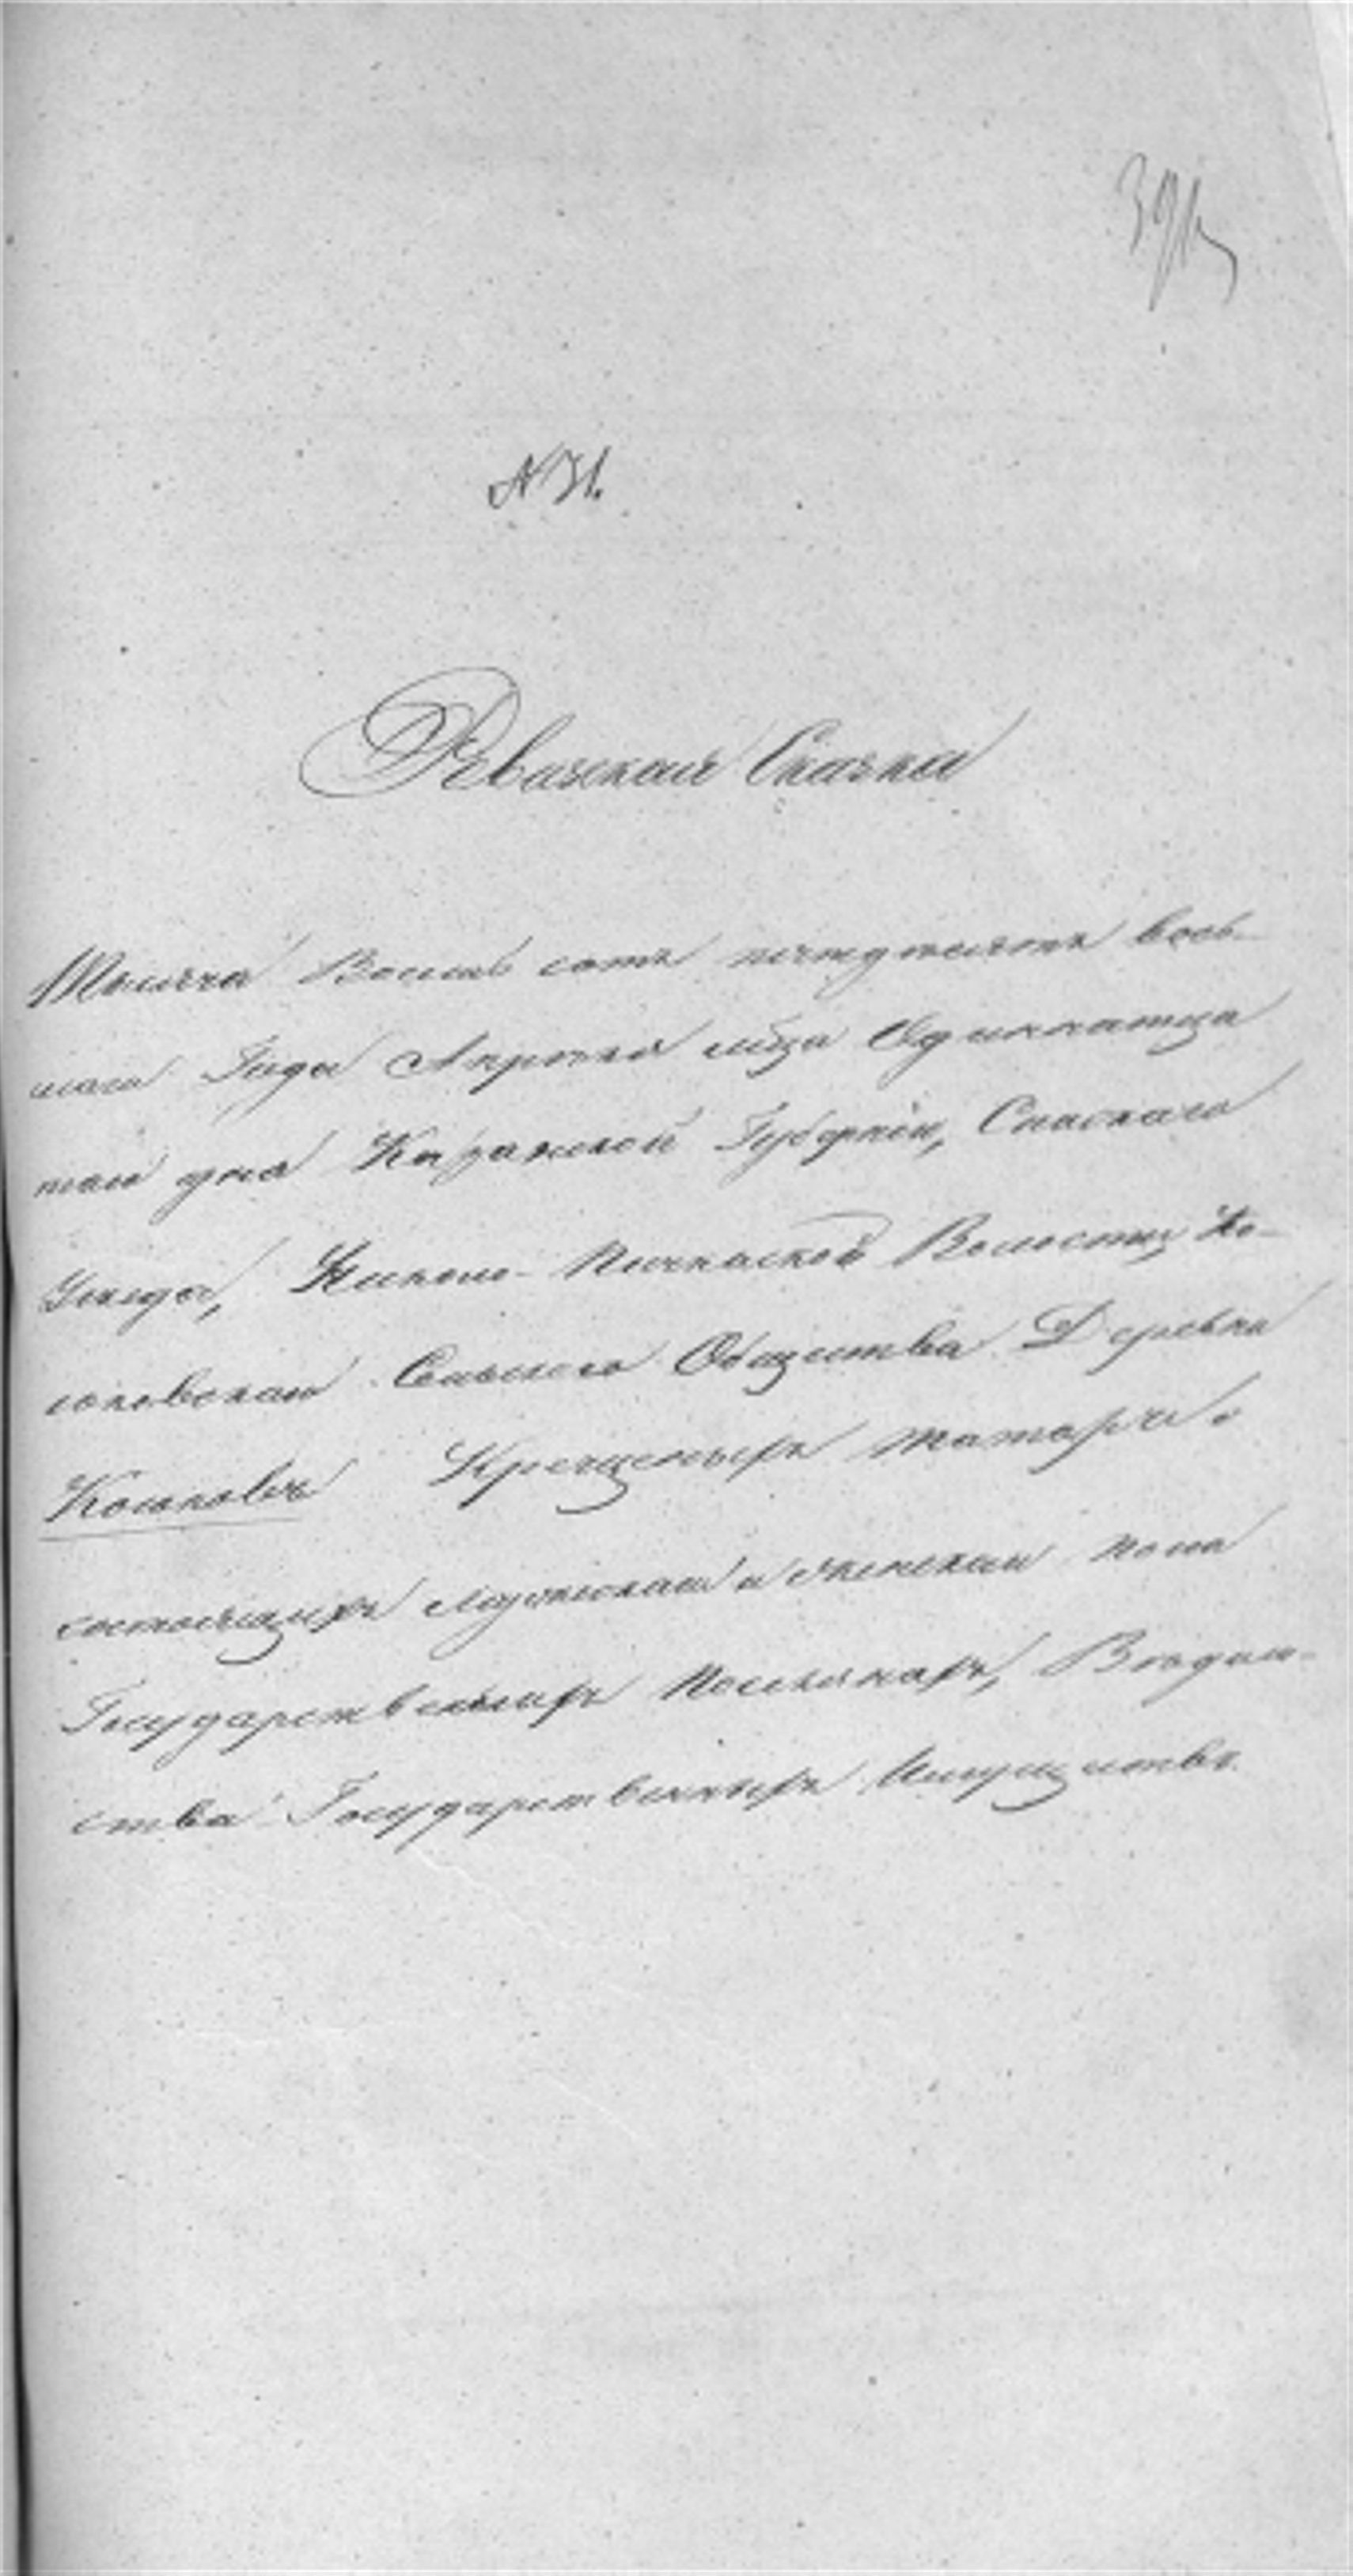 Ревизская Сказка
Тысяча Восемь сотъ пятдесятъ вось-
маго Года Апреля мца Одиннатца
таго дня Казанской Губернiи, Спаскаго
Уезда, Николо-Пичкаской Волости,
Сельскаго Общества Деревни
Крещеныхъ татаръ
состоящихъ мужескаго и женскаго пола
Государственныхъ Поселянахъ, Ведом-
ства Государственныхъ Имуществъ.